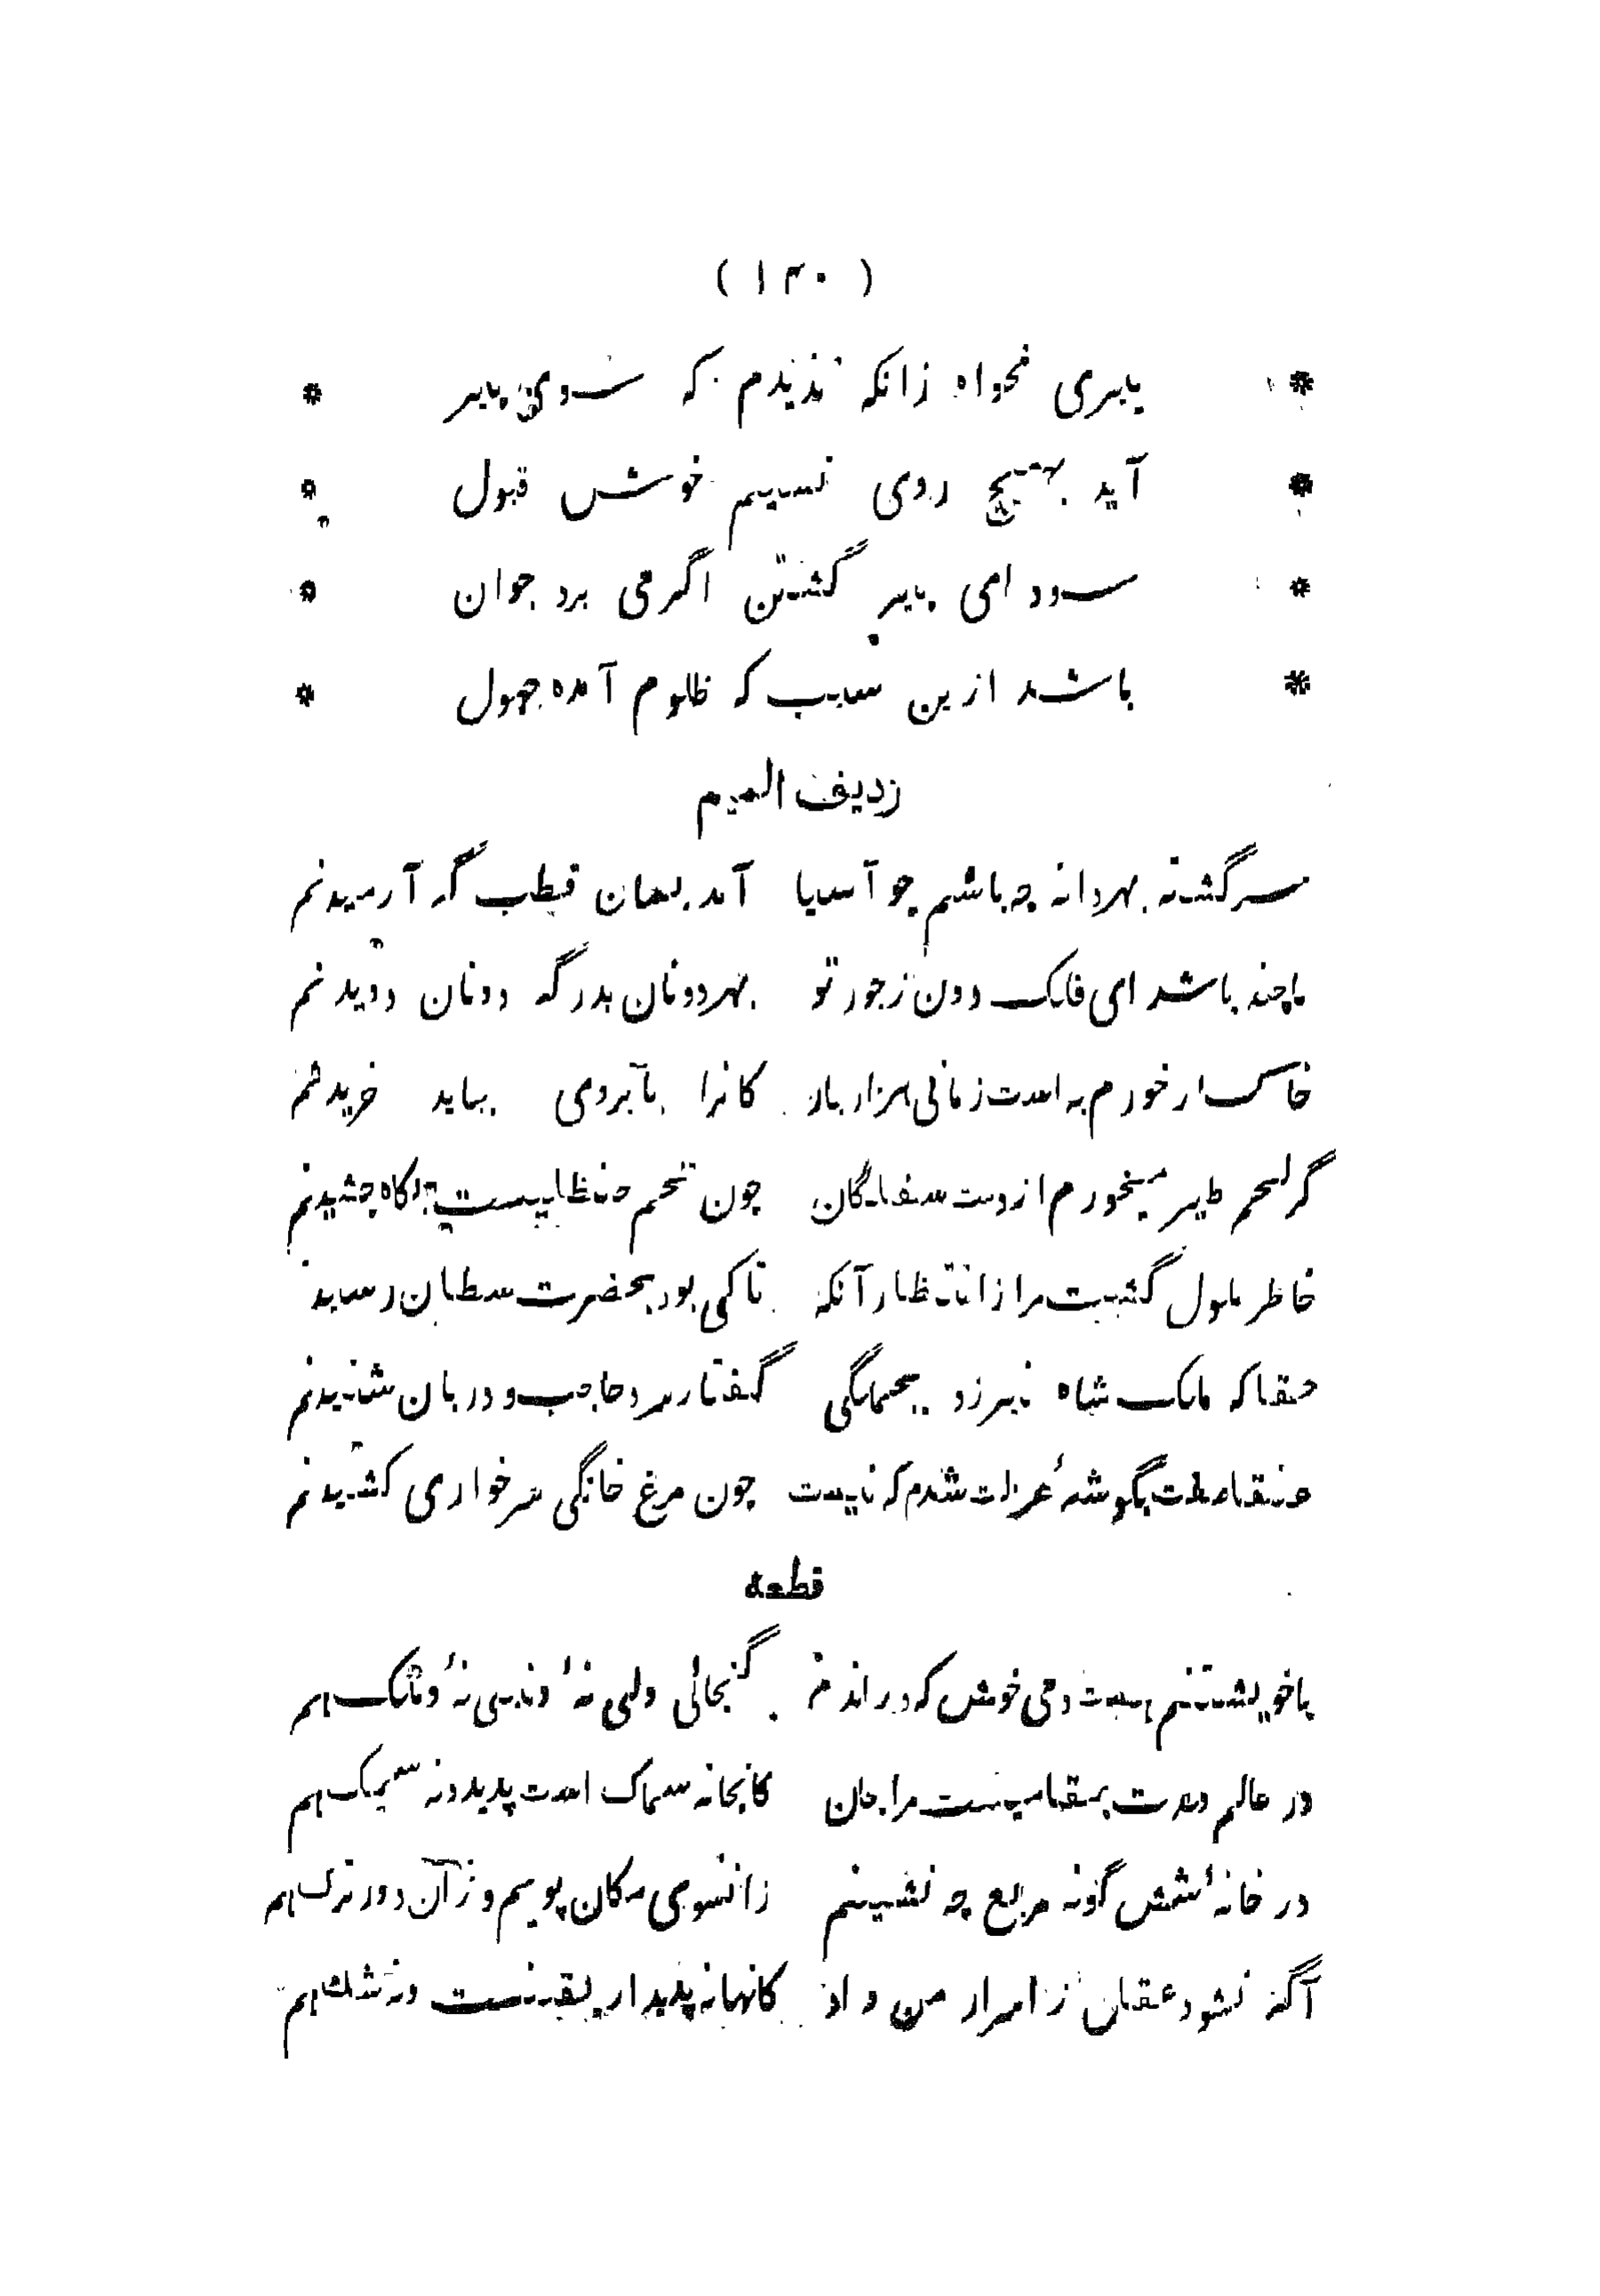 ( ۱۳۰ )
* پیری مخواه زانکه ندیدم که سوی پیر *
* آید بهیچ روی نسیم خوش قبول *
* سودای پیر گشتن اگر می برد جوان *
* باشد ازین سبب که ظلوم آمده جهول *
ردیف المیم
سرگشته بهر دانه چه باشم چو آسیا آمد بسان قطب گه آرمیدنم
تا چند باشد ای فلک دون ز جور تو بهر دونان بدرگه دونان دویدنم
خاک ار خورم به است زمانی هزار بار کانرا بآبروی بباید خریدنم
گر لحم طیر میخورم از دست سفلگان چون تخم حنظلیست بگاه چشیدنم
خاطر ملول گشت مرا ز انتظار آنکه تا کی بود بحضرت سلطان رسیدنم
حقا که ملک شاه نیرزد بجملگی گفتار سرد حاجب و دربان شنیدنم
عنقا صفت بگوشهٔ عزلت شدم که نیست چون مرغ خانگی سر خواری کشیدنم
قطعه
با خویشتنم هست دمی خوش که در اندم گنجائی ولی نهٔ و نبی نهٔ و ملک هم
در عالم وحدت بمقامیست مرا جان کانجا نه سماک است پدید و نه سمک هم
در خانهٔ شش گونه مربع چه نشینم زانسوی مکان پویم و زآن دورترک هم
آگه نشود عقل ز اسرار من و او کانها نه پدیدار یقینست و نه شک هم